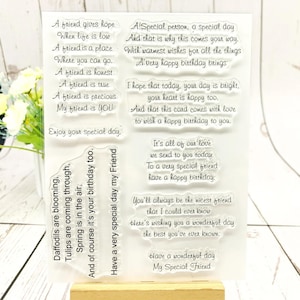 A friend gives hope
When life is low
A friend is a place
Where you can go.
A friend is honest
A friend is true
A friend is precious
My friend is YOU
Enjoy your special day.
Daffodils are blooming,
Tulips are coming through,
Spring is in the air,
And of course it's your birthday too.
Have a very special day my Friend
A!Special person, a special day
And that is why this comes your way.
With warmest wishes for all the things
A very happy birthday brings
I hope that today, your day is bright,
your heart is happy too.
And that this card comes with love
to wish a happy birthday to you.
It's all of our love
we send to you today
To a very special friend
have a happy birthday.
You'll always be the nicest friend
that I could ever know
here's wishing you a wonderful day
the best you've ever known
Have a wonderful day
My Special Friend